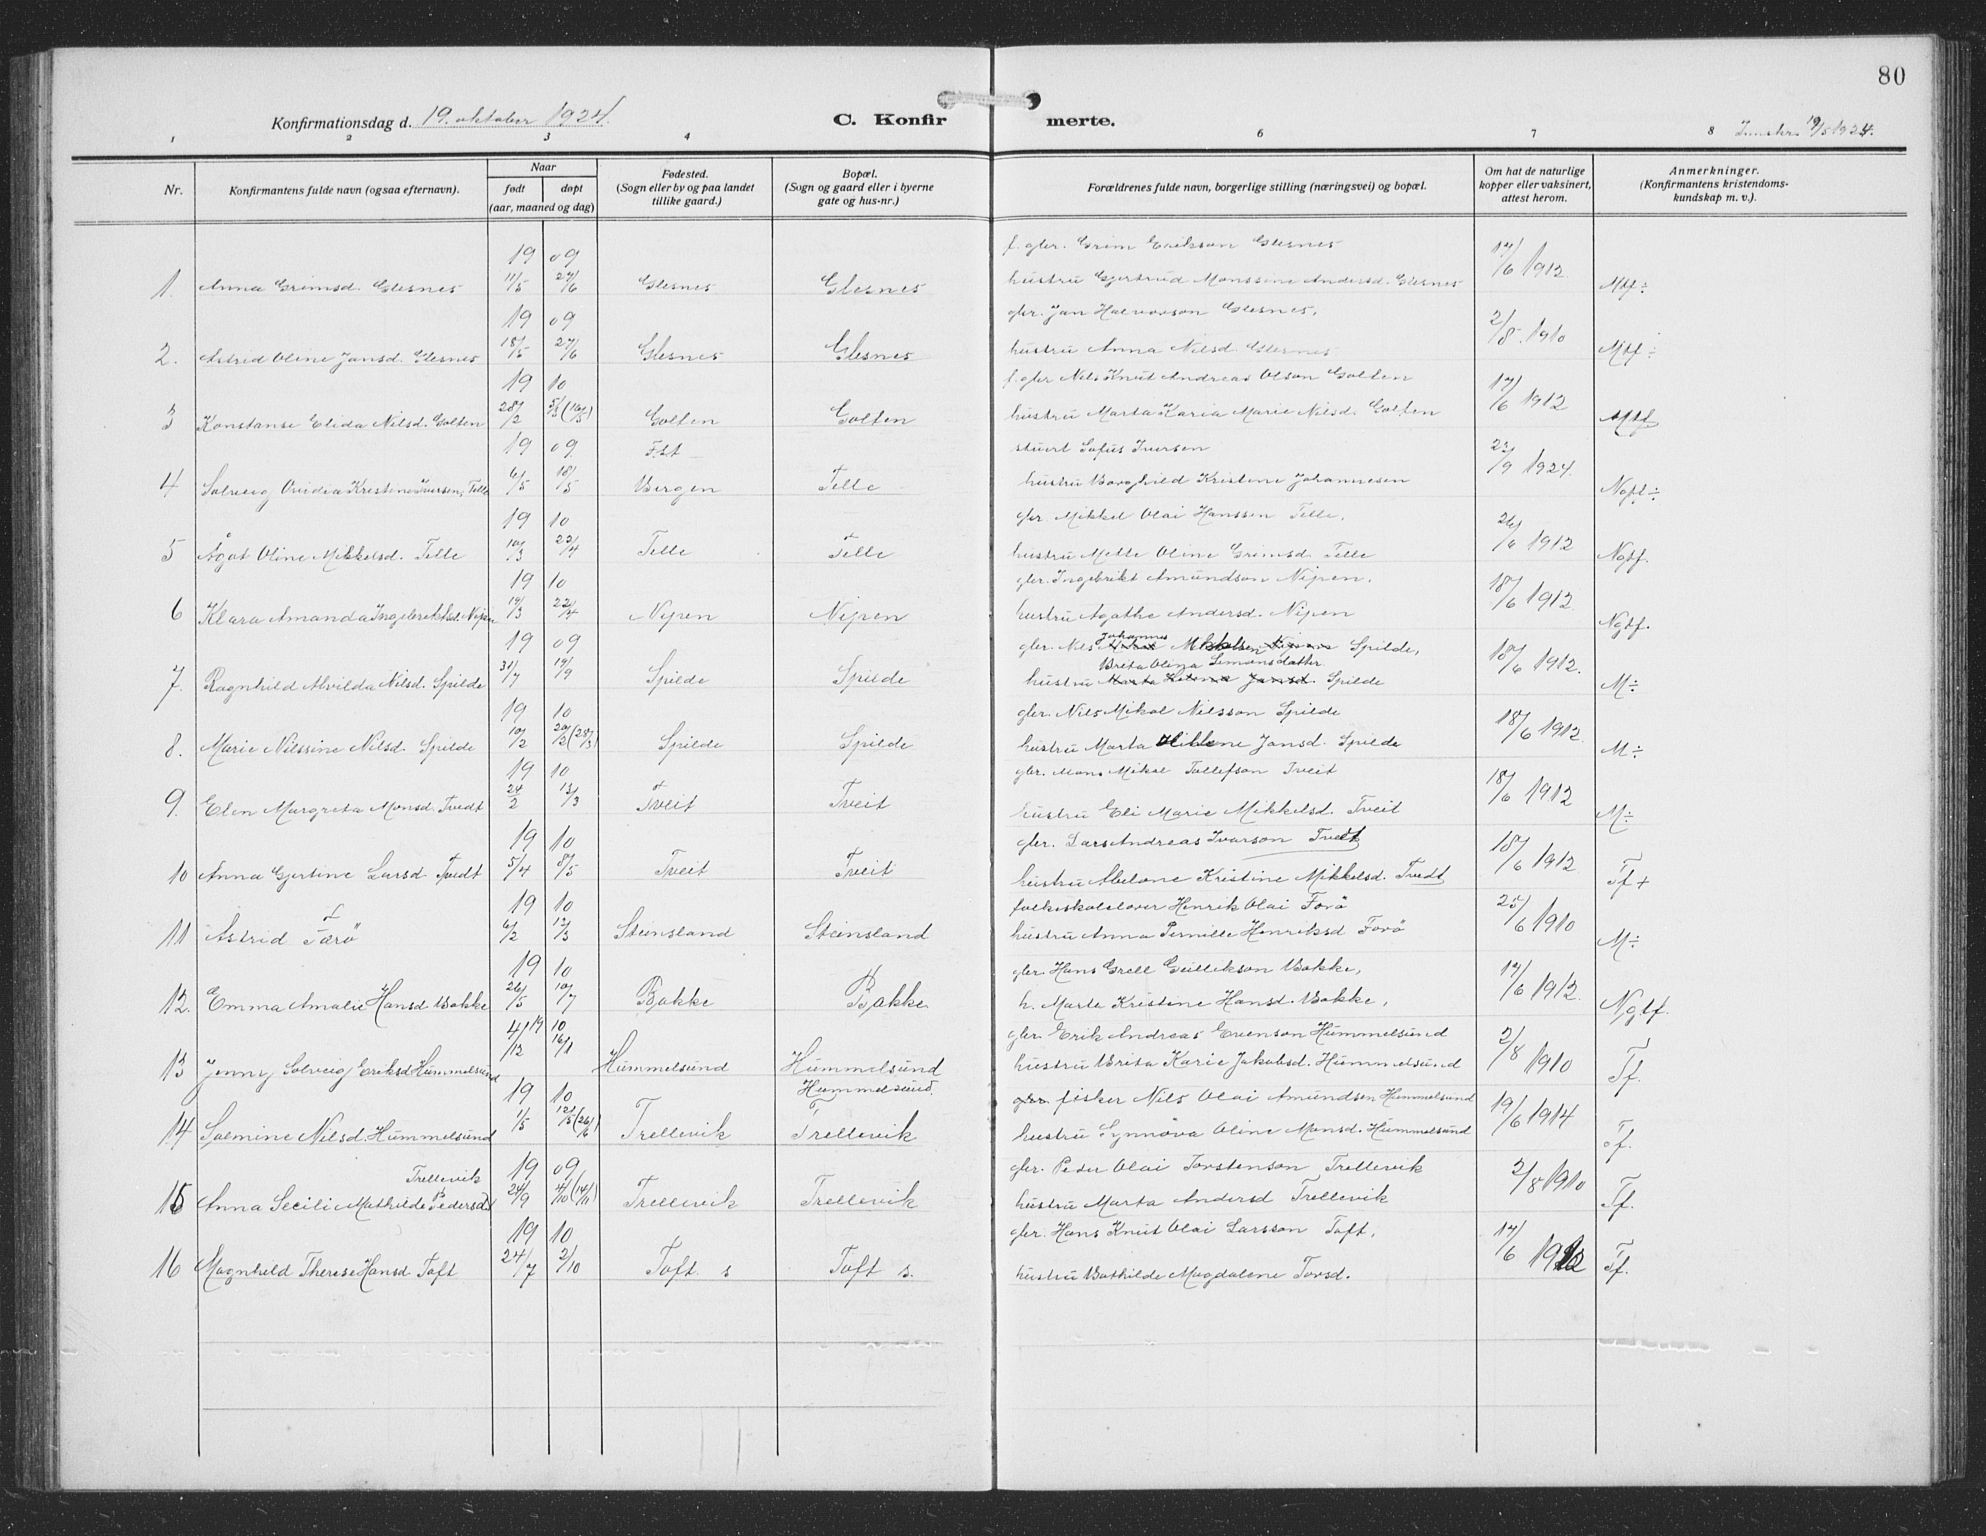 80
Konfirmationsdag d. 19. oktober 1924.
C. Konfirmerte.
1 2 3 4 6 7 8
19/5 1924.
Nr.
Konfirmantens fulde navn (ogsaa efternavn).
Naar
født døpt
(aar, maaned og dag)
Fødested.
(Sogn eller by og paa landet
tillike gaard.)
Bopæl.
(Sogn og gaard eller i byerne
gate og hus-nr.)
Forældrenes fulde navn, borgerlige stilling (næringsvei) og bopæl.
Om hat de naturlige
kopper eller vaksinert,
attest herom.
Anmerkninger.
(Konfirmantens kristendoms-
kundskap m. v.).
19 09 f. gbr. Grim Erikson Glesnes
1. Anna Grimsd. Glesnes 11/5 27/6 Glesnes Glesnes hustru Gjertrud Monssine Andersd. Glesnes 17/6 1912 Mtf ÷
19 09 gbr. Jan Halvorson Glesnes,
2. Astrid Oline Jansd. Glesnes 18/5 27/6 Glesnes Glesnes hustru Anna Nilsd. Glesnes 2/8 1910 Mtf ÷
19 10 f. gbr Nils Knut Andreas Olson Golten
3 Konstanse Elida Nilsd. Golten 28/2 5/3 (16/5) Golten Golten hustru Marta Karia Marie Nilsd. Golten 17/6 1912 Mtf
19 09 stuert Sofus Iversen
4 Solveig Ovidia Kristine Iversen, Telle 6/5 18/5 Bergen Telle hustru Borghild Kristine Johannesen 23/9 1924 Ngt ÷
19 10 gbr. Mikkel Olai Hanssen Telle,
5 Ågot Oline Mikkelsd. Telle 10/3 22/4 Telle Telle hustru Mette Oline Grimsd. Telle 26/6 1912 Ngtf.
19 10 gbr. Ingebrikt Amundson Nipen,
6 Klara Amanda Ingebriktsd. Nipen 19/3 22/4 Nipen Nipen hustru Agathe Andersd. Nipen 18/6 1912 Ngtf.
19 09 gbr. Nils Johannes Mikkelsen Spilde,
Brita Olina Simonsdatter
7. Ragnhild Alvilda Nilsd. Spilde 31/7 19/9 Spilde Spilde hustru Marta Helena Jansd. Spilde 18/6 1912. M ÷
19 10 gbr. Nils Mikal Nilsson Spilde
8. Marie Nilssine Nilsd. Spilde 10/2 20/2 (28/3) Spilde Spilde hustru Marta Jansd. Spilde 18/6 1912 M ÷
19 10 gbr. Mons Mikal Tollefson Tveit
9. Elen Margreta Monsd. Tvedt 24/2 13/3 Tveit Tveit hustru Eli Marie Mikkelsd. Tveit 18/6 1912 M ÷
19 10 gbr. Lars Andreas Ivarson Tvedt
10 Anna Gjertine Larsd. Tvedt 5/4 8/5 Tveit Tveit hustru Abelone Kristine Mikkelsd. Tvedt 18/6 1912 Tf +
19 10 folkeskolelærer Henrik Olai Førö
11 Astrid Færö 6/2 12/3 Steinsland Steinsland hustru Anna Pernille Henriksd Förö 25/6 1910 M ÷
19 10 gbr. Hans Grell Gullikson Bakke,
12. Emma Amalie Hansd Bakke 26/5 10/7 Bakke Bakke h. Marte Kristine Hansd. Bakke, 17/6 1912. Ngtf.
19 10 gbr. Erik Andreas Evenson Hummelsund
13 Jenny Solveig Eriksd Hummelsund 4/12 16/1 Hummelsund Hummelsund hustru Brita Karie Jakobsd. Hummelsund 2/8 1910 Tf.
19 10 Hummelsund. gbr fisker Nils Olai Amundsen Hummelsund
14 Salmine Nilsd. Hummelsund 1/5 12/5 (26/6) Trellevik Trellevik hustru Synnöva Oline Monsd. Hummelsund 19/6 1914 Tf.
Trellevik 19 09 gbr. Peder Olai Torstenson Trellevik
15 Anna Secili Mathilde Pedersd 24/9 4/10 (14/11) Trellevik Trellevik hustru Marta Andersd Trellevik 2/8 1910 Tf.
19 10 gbr. Hans Knut Olai Larsson Toft,
16 Magnhild Therese Hansd Toft 24/7 2/10 Toft s Toft s. hustru Bathilde Magdalene Torsd. 17/6 1912 Tf.